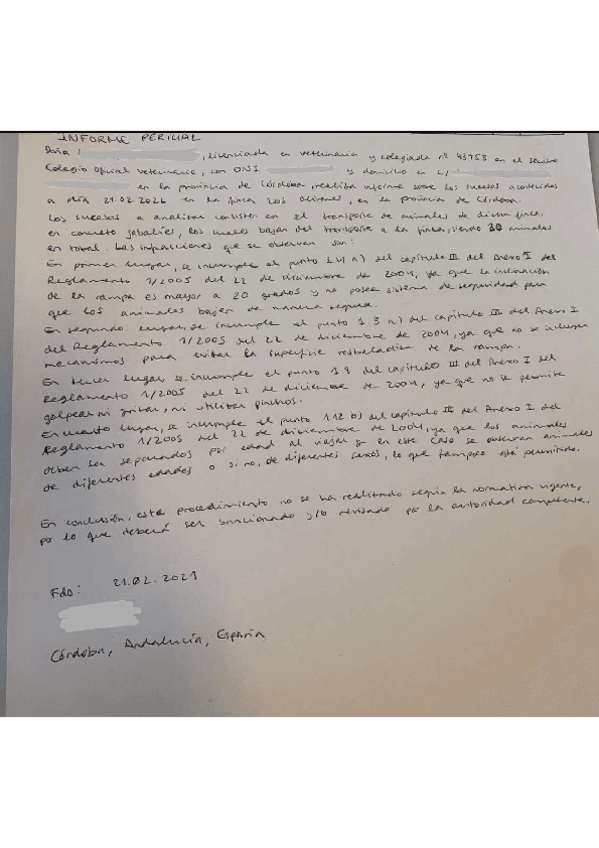 INFORME PERICIAL
Doña : , licenciada en veterinaria y colegiada nº 43753 en el
Colegio Oficial Veterinario, con DNI y domicilio en C/
en la provincia de Córdoba, realiza informe sobre los sucesos acontecidos
a día 21.02.2021 en la finca Los , en la provincia de Córdoba.
Los sucesos a analizar consisten en el transporte de animales de dicha finca,
en concreto jabalíes, los cuales bajan del transporte a la finca, siendo 30 animales
en total. Las infracciones que se observan son:
En primer lugar, se incumple el punto 1.4 a) del capítulo III del Anexo I del
Reglamento 1/2005 del 22 de diciembre de 2004, ya que la inclinación
de la rampa es mayor a 20 grados y no posee sistema de seguridad para
que los animales bajen de manera segura.
En segundo lugar, se incumple el punto 1.3 a) del capítulo III del Anexo I
del Reglamento 1/2005 del 22 de diciembre de 2004, ya que no se incluyen
mecanismos para evitar la superficie resbaladiza de la rampa.
En tercer lugar, se incumple el punto 1.8 del capítulo III del Anexo I del
Reglamento 1/2005 del 22 de diciembre de 2004, ya que no se permite
golpear ni gritar, ni utilizar pinchos.
En cuarto lugar, se incumple el punto 1.12 b) del capítulo III del Anexo I del
Reglamento 1/2005 del 22 de diciembre de 2004, ya que los animales
deben ser separados por edad al viajar y en este caso se observan animales
de diferentes edades o si no, de diferentes sexos, lo que tampoco está permitido.
En conclusión, este procedimiento no se ha realizado según la normativa vigente,
por lo que deberá ser sancionado y/o revisado por la autoridad competente.
Fdo: 21.02.2021
Córdoba, Andalucía, España